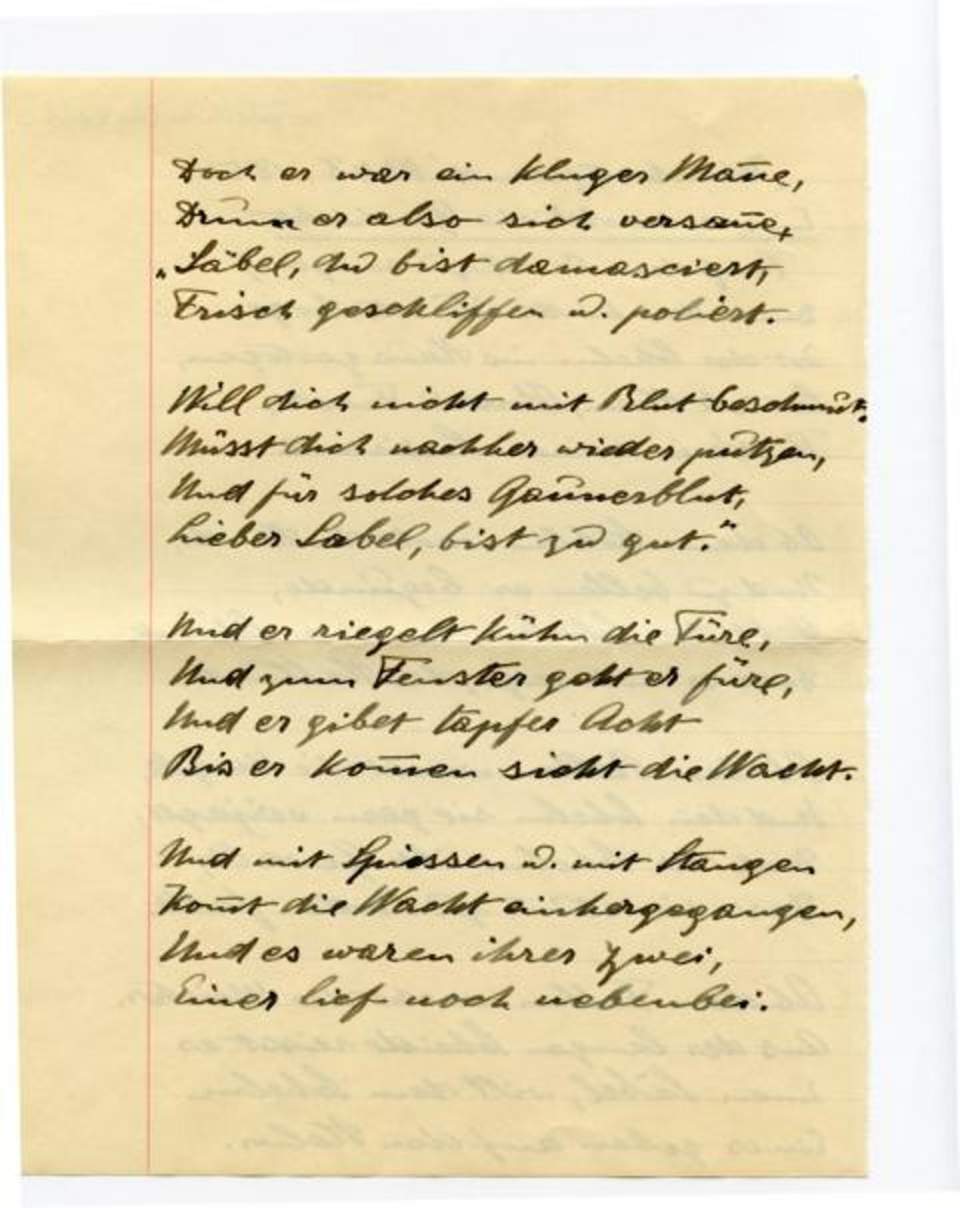 Doch er war ein kluger Mañe,
Drum er also sich versañe,
„Säbel, du bist damasciert,
Frisch geschliffen u. poliert.
Will dich nicht mit Blut beschmutz.
Müsst dich nachher wieder putzen,
Und für solches Gaunerblut,
Lieber Säbel, bist zu gut."
Und er riegelt kühn die Türe,
Und zum Fenster geht er füre,
Und er gibet tapfer Acht
Bis er kom̄en sieht die Wacht.
Und mit Spiessen u. mit Stangen
Kom̄t die Wacht einhergegangen,
Und es waren ihrer zwei,
Einer lief noch nebenbei.